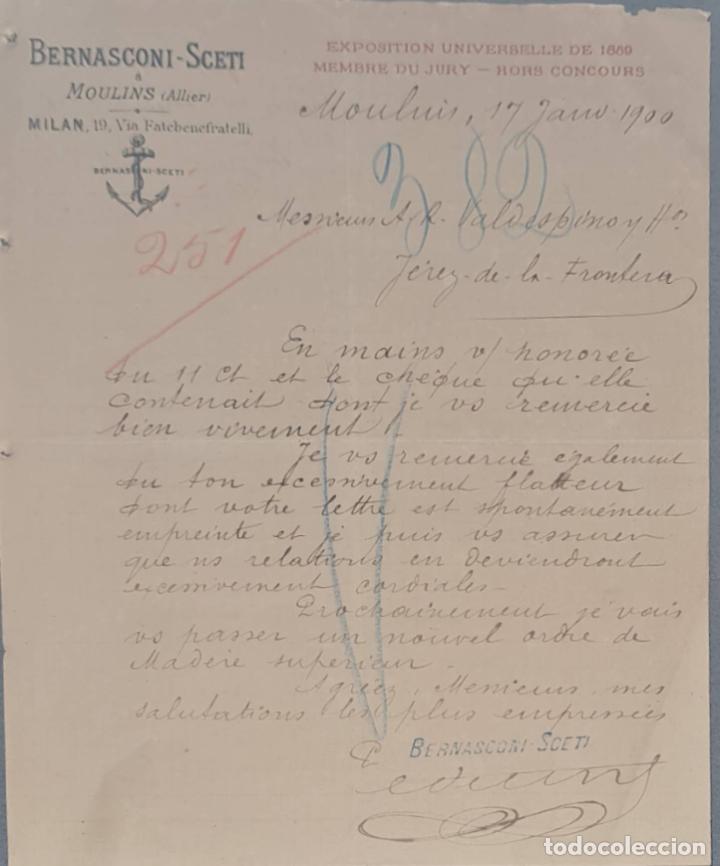 BERNASCONI-SCETI
à
MOULINS (Allier)
MILAN, 19, Via Fatebenefratelli
BERNASCONI-SCETI
EXPOSITION UNIVERSELLE DE 1889
MEMBRE DU JURY — HORS CONCOURS
Moulins, 17 Janv 1900
382
251
Messieurs A. R. Valdespino y Hos
Jérez-de-la-Frontera
En mains v/ honorée
du 11 Ct et le chèque qu'elle
contenait dont je vs remercie
bien vivement.
Je vs remercie également
du ton excessivement flatteur
dont votre lettre est spontanément
empreinte et je puis vs assurer
que ns relations en deviendront
excessivement cordiales -
Prochainement je vais
vs passer un nouvel ordre de
Madère supérieur -
Agréez, Messieurs, mes
salutations les plus empressées
P BERNASCONI-SCETI
todocoleccion